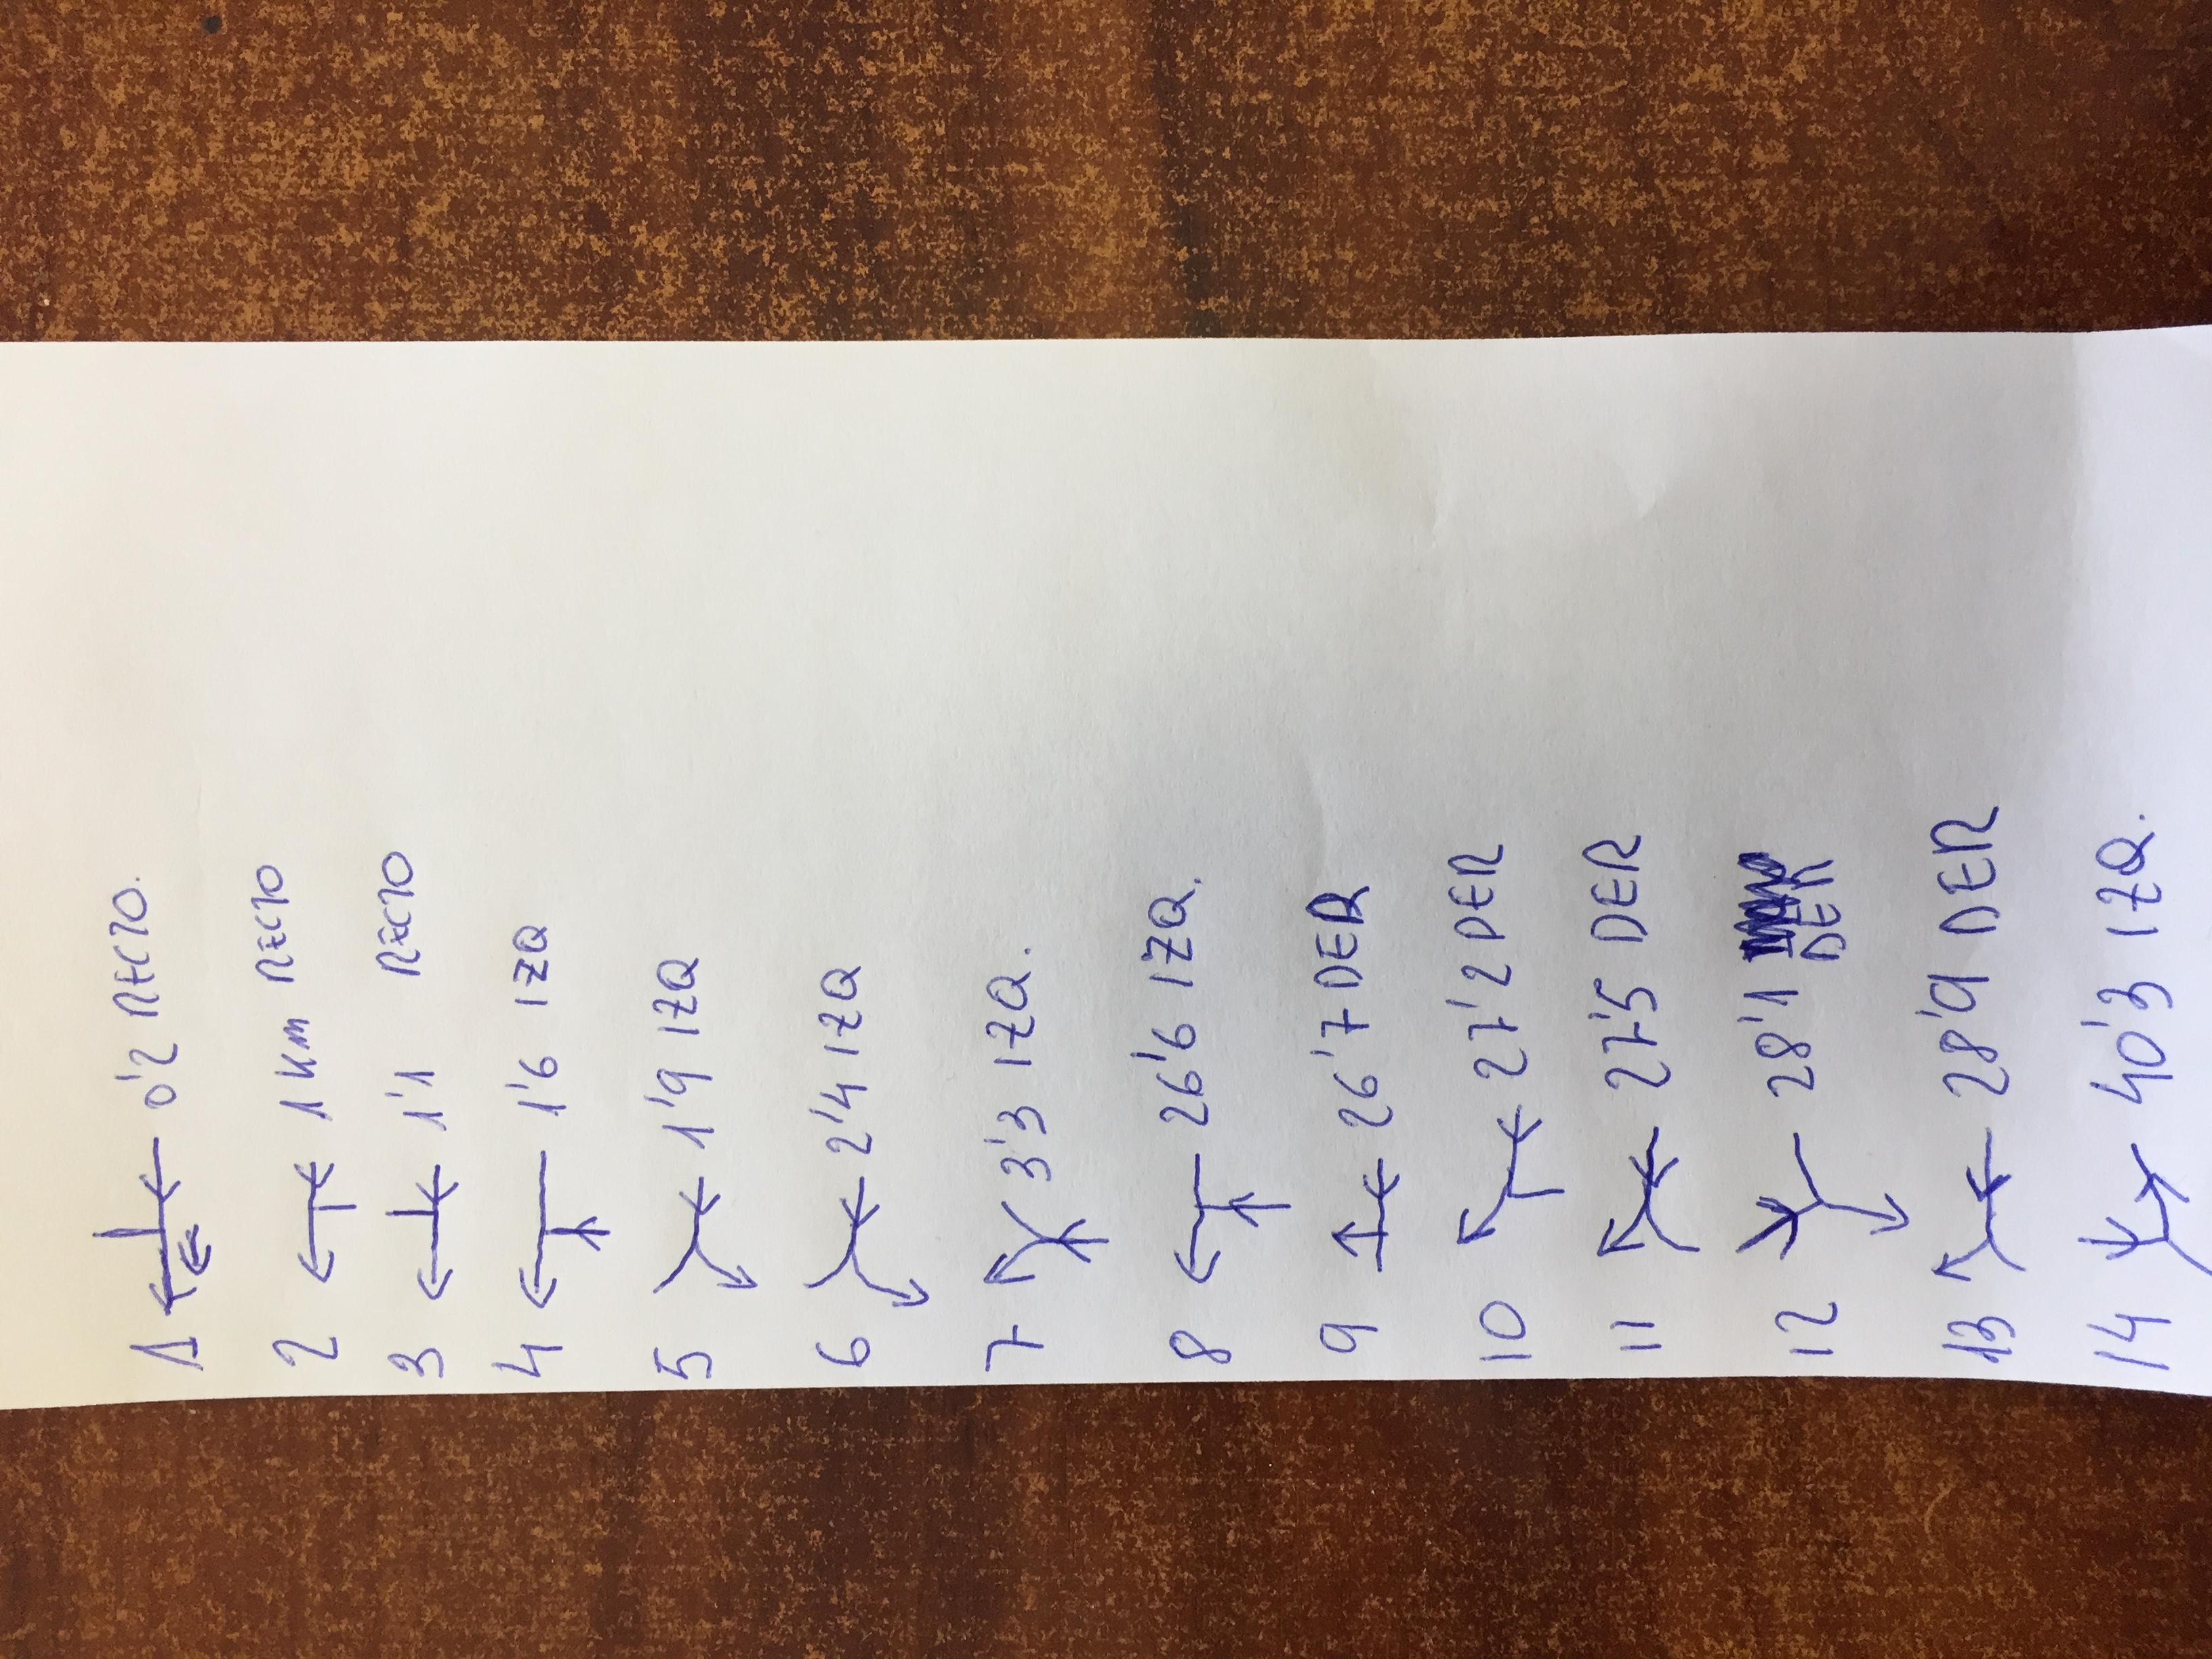 1 0'2 RECTO.
2 1 Km RECTO
3 1'1 RECTO
4 1'6 IZQ
5 1'9 IZQ
6 2'4 IZQ
7 3'3 IZQ.
8 26'6 IZQ.
9 26'7 DER
10 27'2 DER
11 27'5 DER
12 28'1 DER
13 28'9 DER
14 40'3 IZQ.